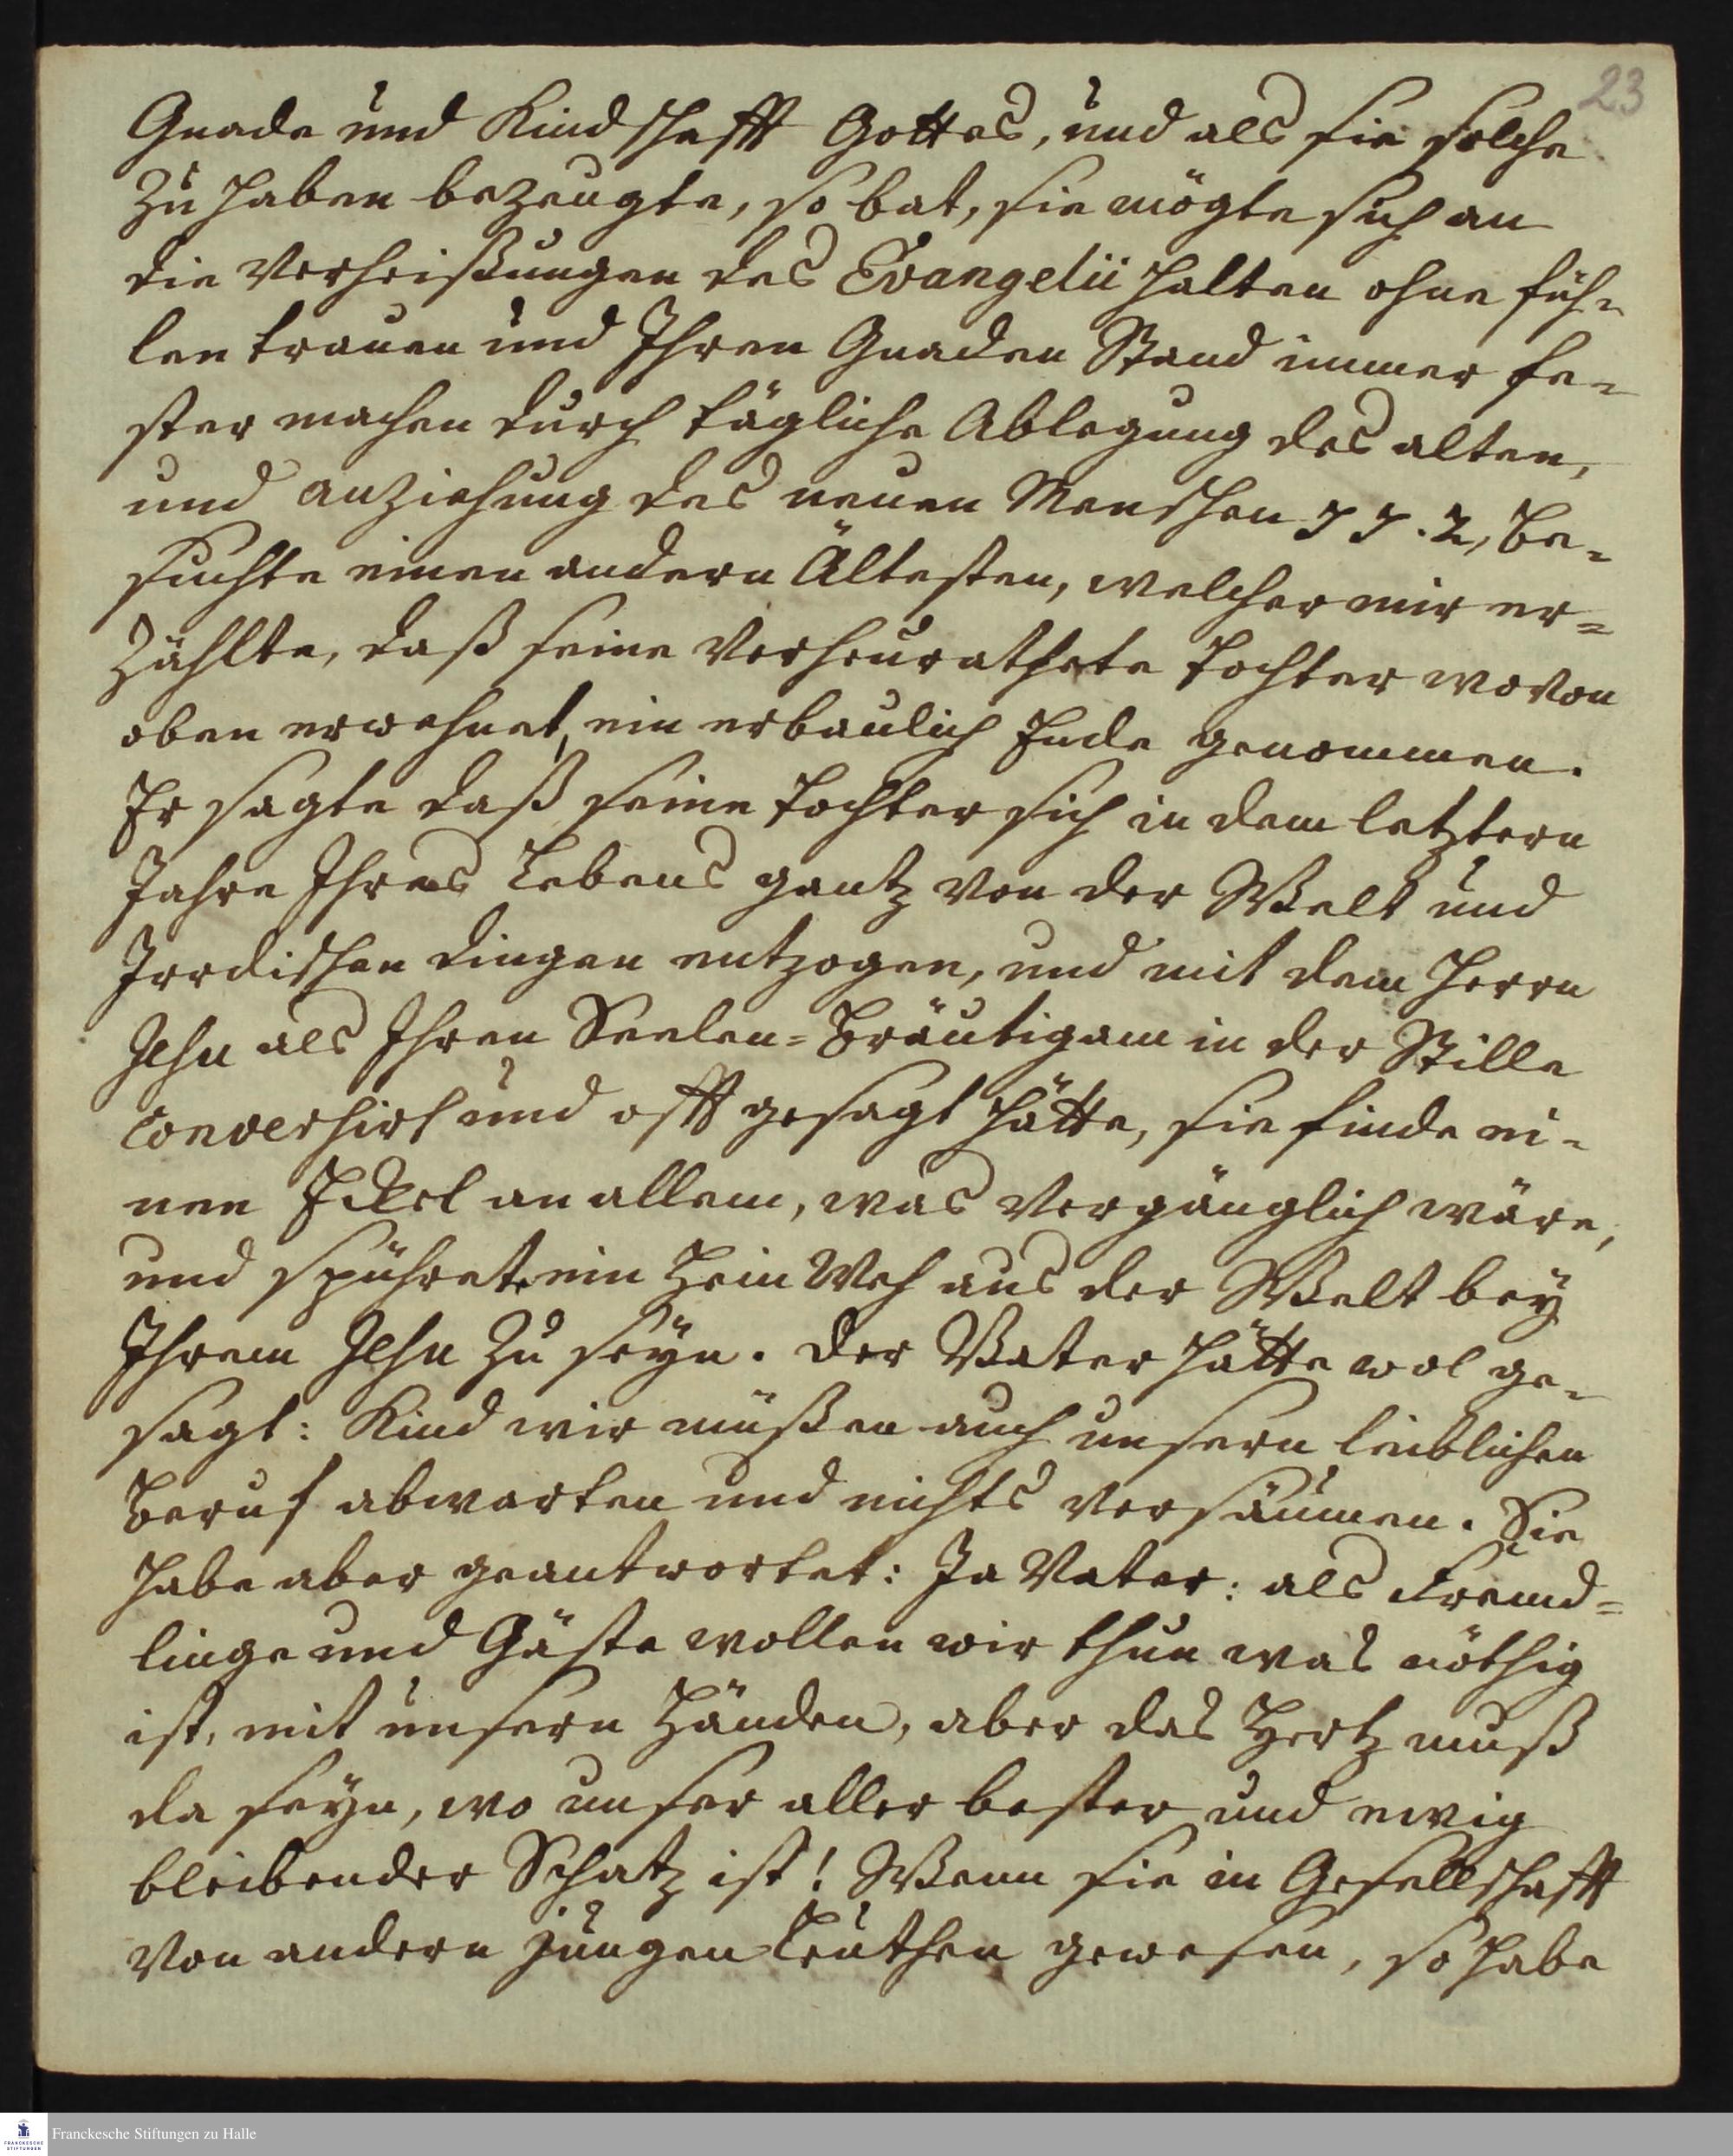 23
Gnade und Kindschafft Gottes, und als sie solche
zu haben bezeugte, so bat, sie mögte sich an
die Verheißungen des Evangelii halten ohne füh-
len trauen und Ihren Gnaden Stand immer fe-
ster machen durch tägliche Ablegung des alten,
und anziehung des neuen Menschen 2, Be-
suchte einen andern Ältesten, welcher mir er=
zählte, daß seine Verheurathete Tochter wovon
oben erwehnet, ein erbaulich Ende genommen.
Er sagte daß seine Tochter sich in dem letztern
Jahre Ihres Lebens gantz von der Welt und
Irrdischen dingen entzogen, und mit dem Herrn
Jesu als Ihren Seelen=Bräutigam in der Stille
conversirt und offt gesagt hätte, sie finde ei-
nen Eckel an allem, was vergänglich wäre,
und spühret ein Heim Weh aus der Welt bey
Ihrem Jesu zu seyn. Der Vater hätte wol ge-
sagt: Kind wir müßen auch unsern leiblichen
Beruf abwarten und nichts versäumen. Sie
habe aber geantwortet: Ja Vater: als Fremd=
linge und Gäste wollen wir thun was nöthig
ist, mit unsern Händen, aber das Hertz muß
da seyn, wo unser aller bester und ewig
bleibender Schatz ist! Wenn sie in Gesellschafft
von andern jungen Leuthen gewesen, so habe
Franckesche Stiftungen zu Halle
FRANCKESCHE
STIFTUNGEN